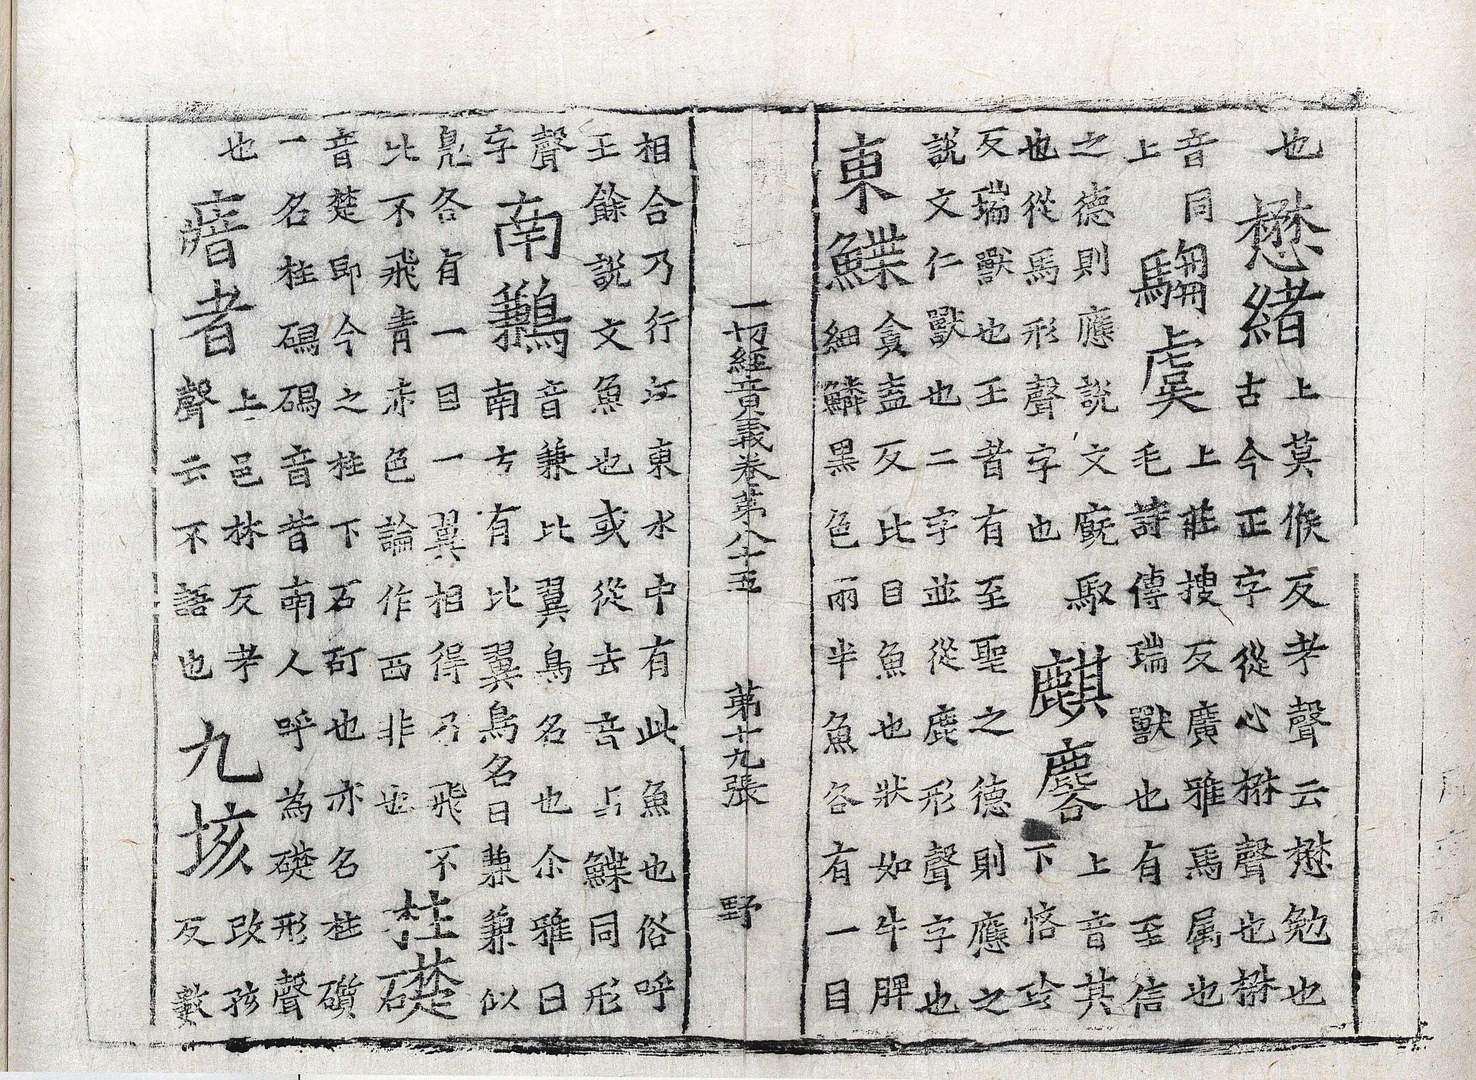 也
懋緒
上莫候反考聲云懋勉也
古今正字從心楙聲也楙
音同
上
騶虞
上莊搜反廣雅馬屬也
毛詩傳瑞獸也有至信
之德則應說文廐馭
也從馬形聲字也
麒麐
上音其
下恡㐱
反瑞獸也王者有至聖之德則應之
說文仁獸也二字並從鹿形聲字也
東鰈
貪盍反比目魚也狀如牛脾
細鱗黑色兩半魚各有一目
一切經音義卷第八十五 第十九張 野
相合乃行江東水中有此魚也俗呼
王餘說文魚也或從去音占鰈同形
聲
字
南鶼
音兼比翼鳥名也尒雅曰
南方有比翼鳥名曰鶼鶼似
鳧各有一目一翼相得乃飛不
比不飛青赤色論作西非也
柱礎
音楚即今之柱下石矴也亦名柱礩
一名柱磶磶音昔南人呼為礎形聲
也
瘖者
上邑林反考
聲云不語也
九垓
改孩
反數